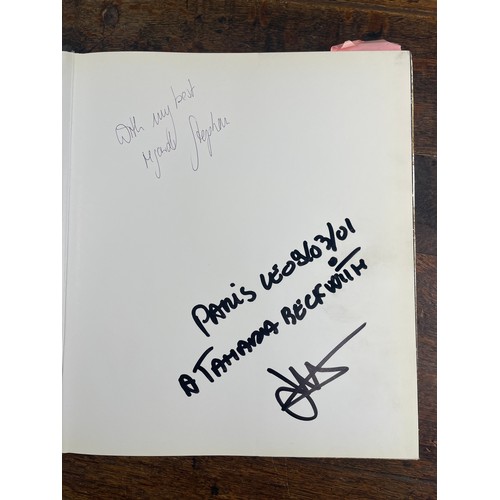 With my best
regards Stephane
PARIS LE 09/03/01
A TAMARA BECKWITH